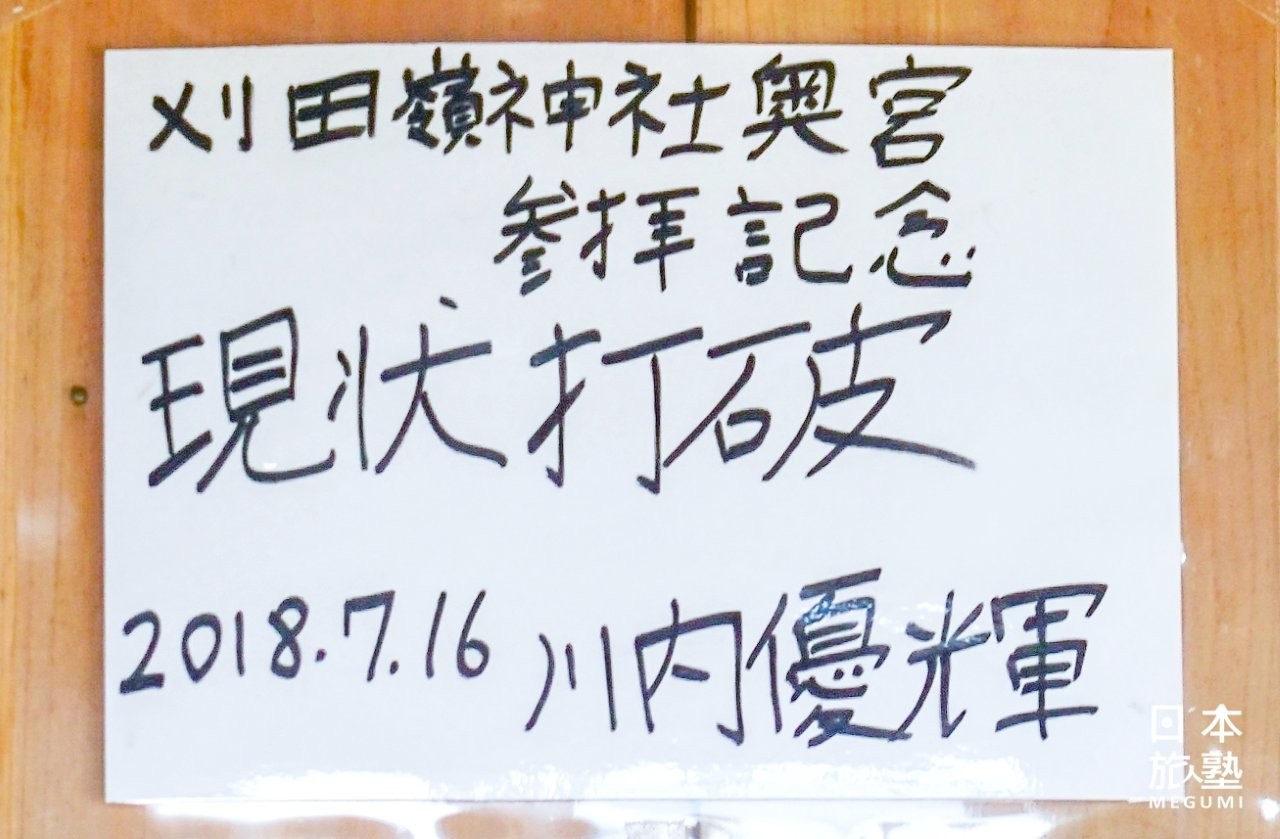 刈田嶺神社奥宮
参拝記念
現状打破
2018.7.16 川内優輝
日本
旅人塾
MEGUMI